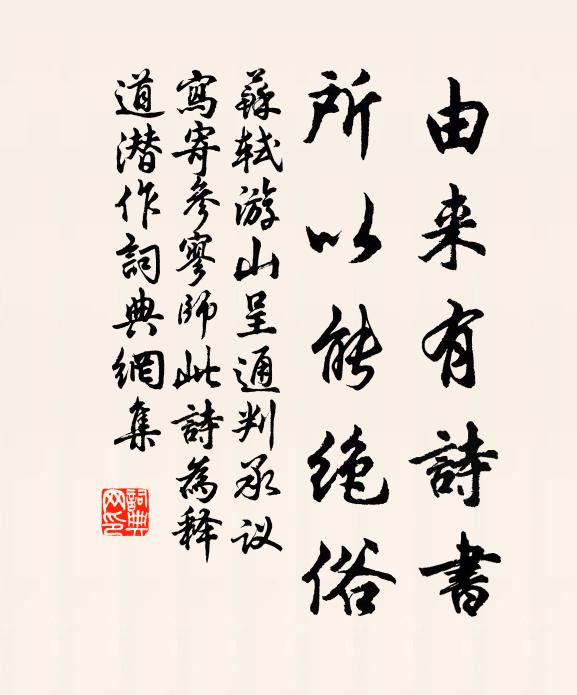 由来有詩書
所以能绝俗
蘇軾游山呈通判承议
寫寄參寥師此詩為释
道潜作詞典網集
詞典网印